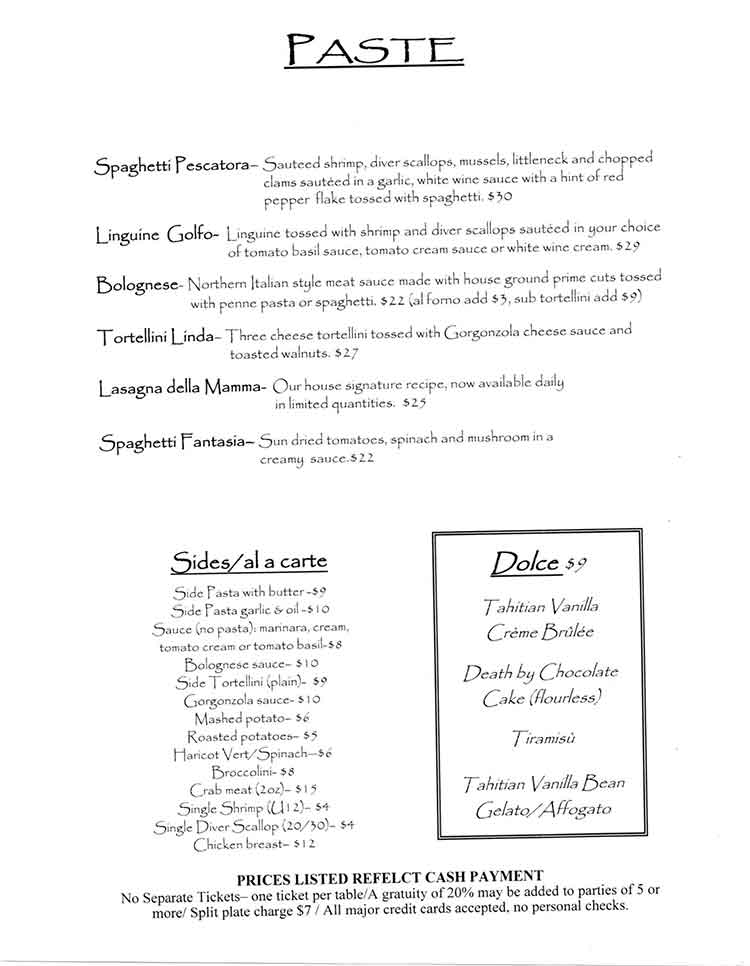 PASTE
Spaghetti Pescatora– Sauteed shrimp, diver scallops, mussels, littleneck and chopped
clams sautéed in a garlic, white wine sauce with a hint of red
pepper flake tossed with spaghetti. $30
Linguine Golfo- Linguine tossed with shrimp and diver scallops sautéed in your choice
of tomato basil sauce, tomato cream sauce or white wine cream. $29
Bolognese- Northern Italian style meat sauce made with house ground prime cuts tossed
with penne pasta or spaghetti. $22 (al forno add $3, sub tortellini add $9)
Tortellini Linda– Three cheese tortellini tossed with Gorgonzola cheese sauce and
toasted walnuts. $27
Lasagna della Mamma- Our house signature recipe, now available daily
in limited quantities. $25
Spaghetti Fantasia– Sun dried tomatoes, spinach and mushroom in a
creamy sauce.$22
Sides/al a carte
Side Pasta with butter -$9
Side Pasta garlic & oil -$10
Sauce (no pasta): marinara, cream,
tomato cream or tomato basil-$8
Bolognese sauce– $10
Side Tortellini (plain)- $9
Gorgonzola sauce- $10
Mashed potato– $6
Roasted potatoes– $5
Haricot Vert/Spinach—$6
Broccolini- $8
Crab meat (2oz)– $15
Single Shrimp (U12)– $4
Single Diver Scallop (20/30)– $4
Chicken breast– $12
Dolce $9
Tahitian Vanilla
Crème Brûlée
Death by Chocolate
Cake (flourless)
Tiramisù
Tahitian Vanilla Bean
Gelato/Affogato
PRICES LISTED REFELCT CASH PAYMENT
No Separate Tickets– one ticket per table/A gratuity of 20% may be added to parties of 5 or
more/ Split plate charge $7 / All major credit cards accepted, no personal checks.